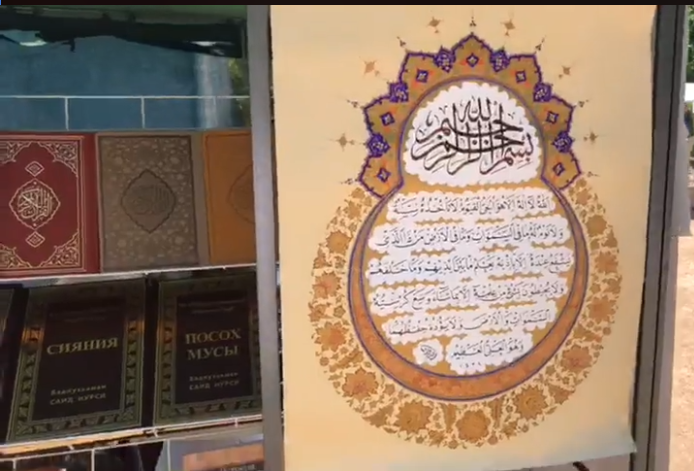 القرآن الكريم
СИЯНИЯ
Бадиуззаман
САИД НУРСИ
ПОСОХ
МУСЫ
Бадиуззаман
САИД НУРСИ
بسم الله الرحمن الرحيم
الله لا إله إلا هو الحي القيوم لا تأخذه سنة
ولا نوم له ما في السموات وما في الأرض من ذا الذي
يشفع عنده إلا بإذنه يعلم ما بين أيديهم وما خلفهم
ولا يحيطون بشيء من علمه إلا بما شاء وسع كرسيه
السموات والأرض ولا يؤده حفظهما
وهو العلي العظيم